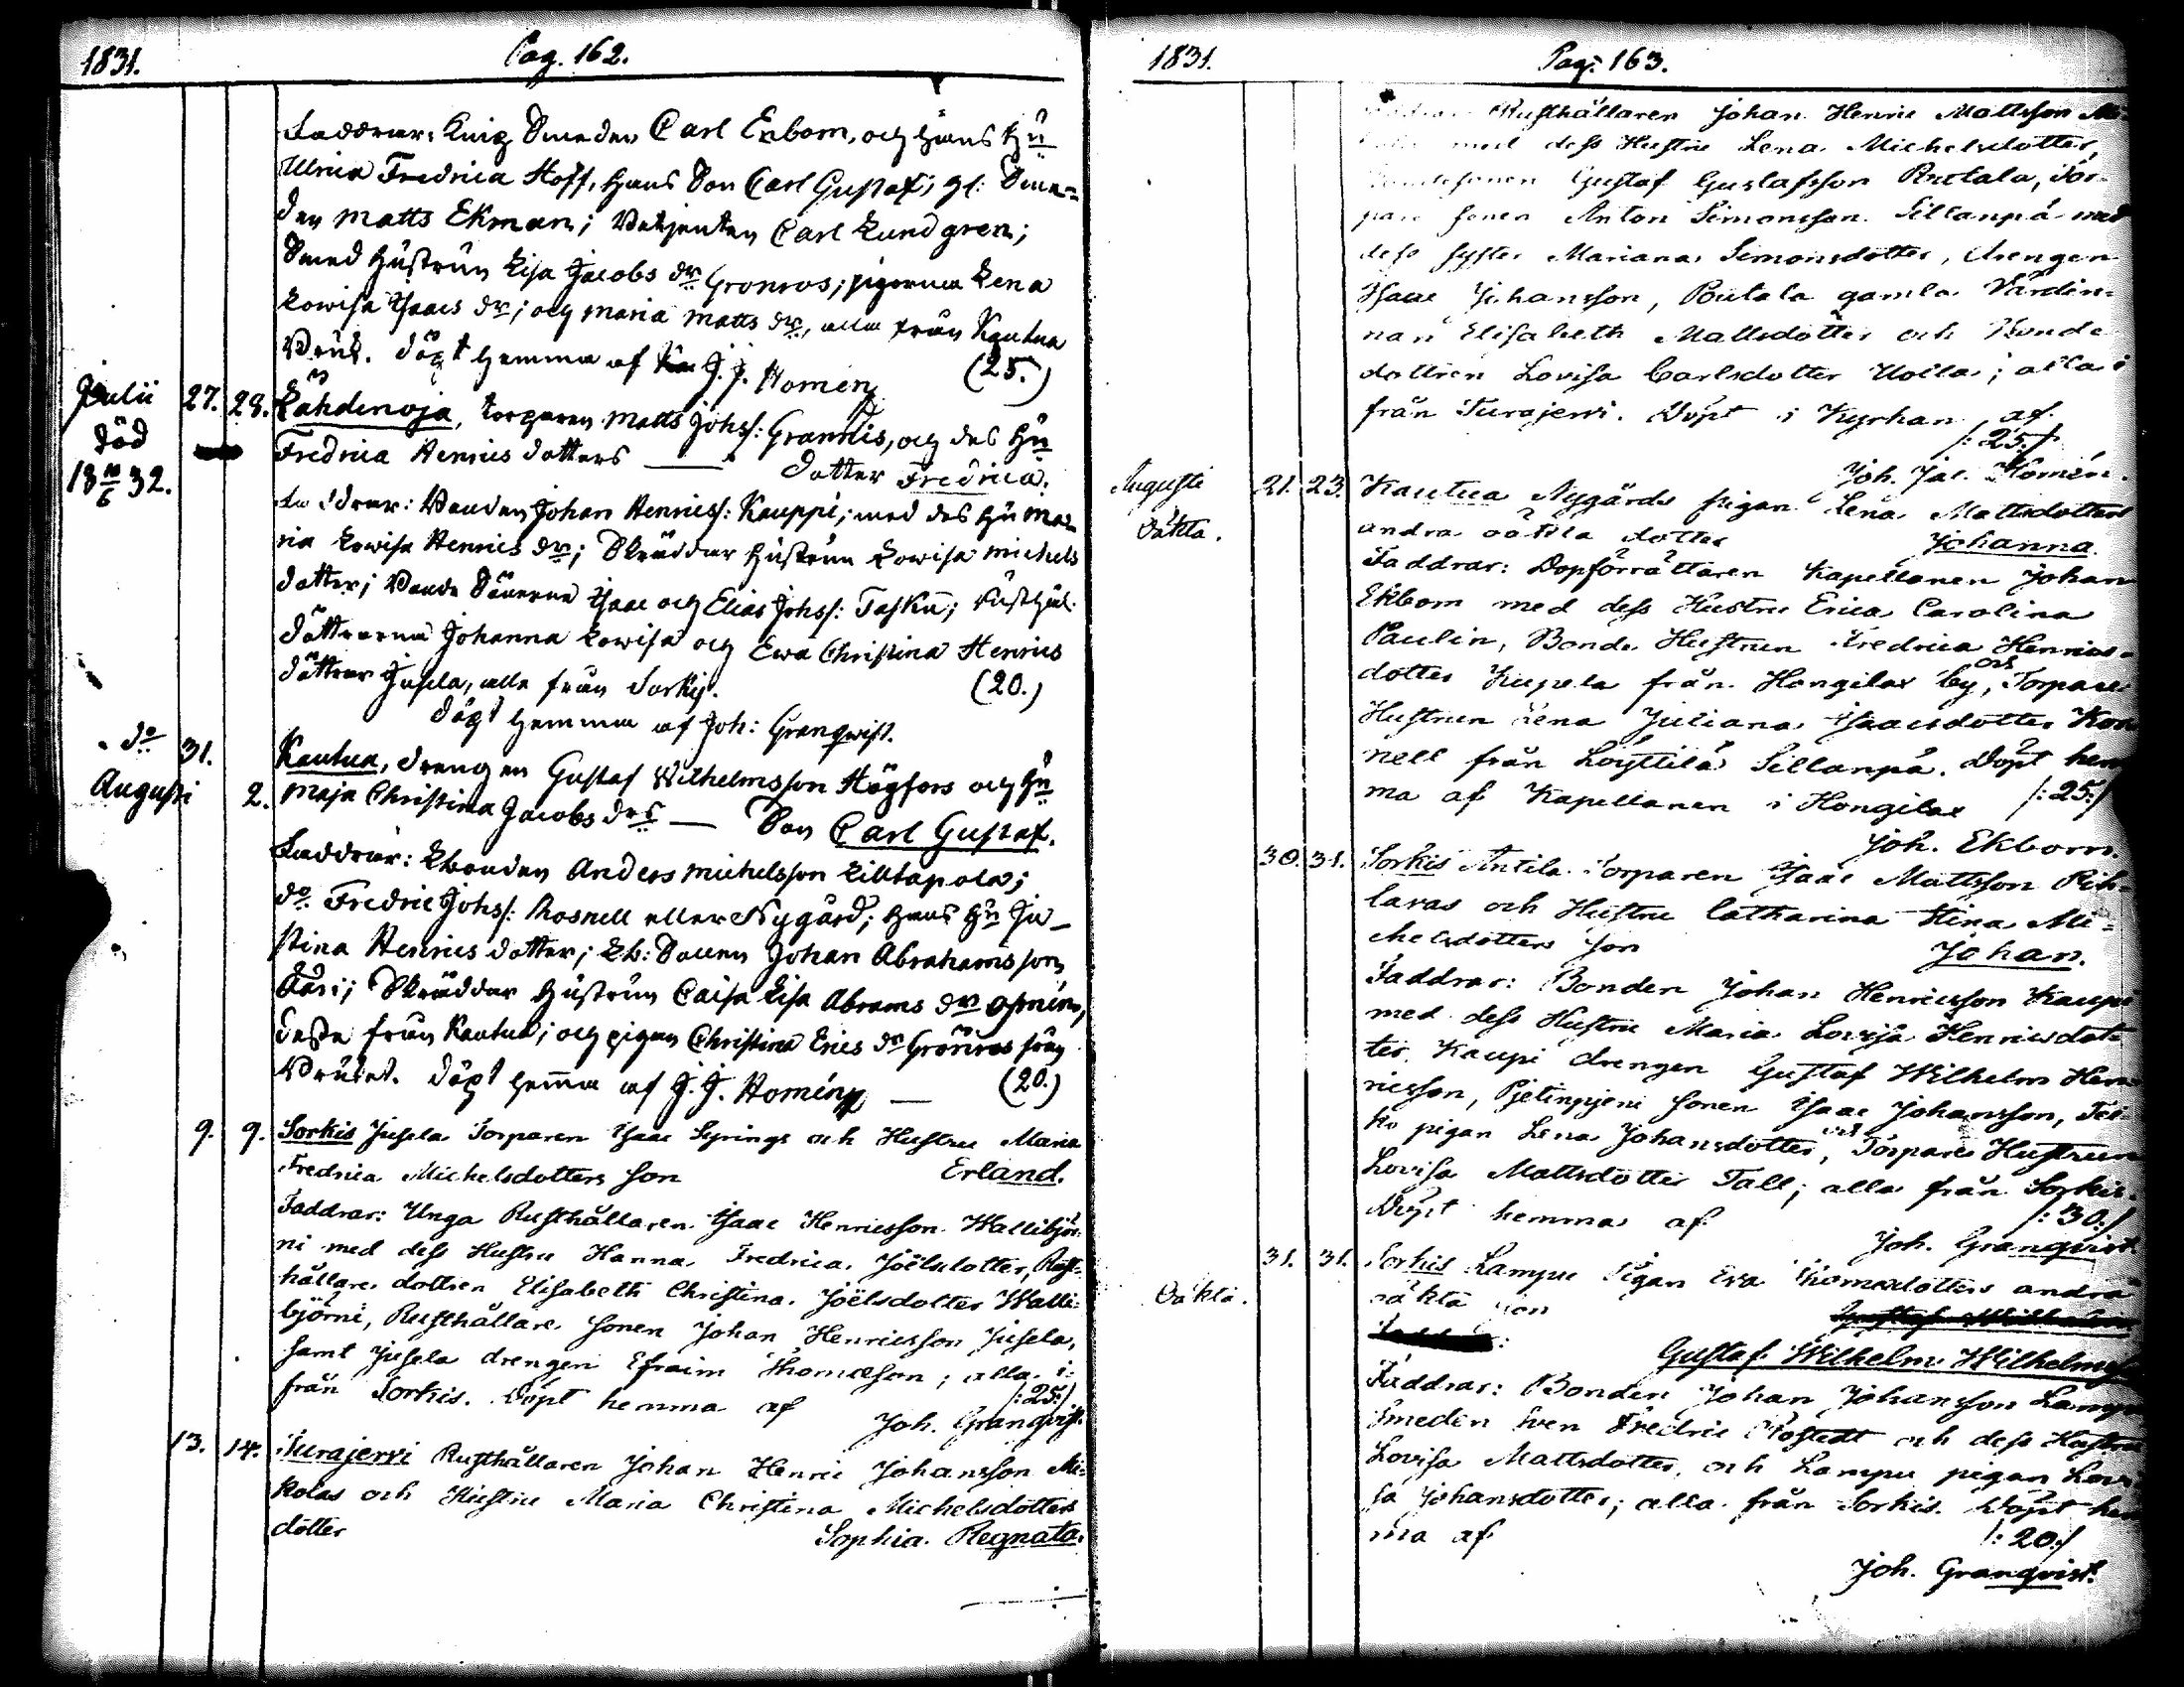 1831. Pag. 162.
Faddrar: Knip Smeden Carl Enbom, och hans Hu
Ulrica Fredrica Hoff, hans Son Carl Gustaf; gl: Sme=
den Matts Ekman; Betjenten Carl Lundgren;
Smed hustrun Lisa Jacobs dr Gronros; pigorna Lena
Lowisa Isaacs dr; och Maria Matts dr, alla från Kautua
Bruk. Döpt hemma af J. J. Homén (25.)
Julii 27. 28. Lähdenoja, torparen Matts Johs/: Grannis, och des Hu
död Fredrica Henrics dotters — dotter Fredrica.
18 10/6 32.
Faddrar: Bonden Johan Henrics/: Kauppi; med des Hu Ma=
ria Lowisa Henrics dr; Skräddar hustrun Lowisa Michels
dotter; Bonde Sönerne Isaac och Elias Johs/: Tasku; rusthål.
döttrarna Johanna Lowisa och Ewa Christina Henrics
döttrar Jusela, alla från Sorkis. (20.)
döpt hemma af Joh: Granqwist.
do 31. Kautua, drengen Gustaf Wilhelmsson Högfors och Hu
Augusti 2. Maja Christina Jacobs drs — Son Carl Gustaf.
Faddrar: Lbonden Anders Michelsson Killtapola;
do Fredric Johs/: Rosnell eller Nygård; hans Hu Ju-
stina Henrics dotter; Lb: Sonen Johan Abrahamsson
; Skräddar hustrun Caisa Lisa Abrams dr ,
dessa från Kautua; och pigan Christina Erics dr Grönros från
Bruket. döpt hemma af J. J. Homén — (20.)
9. 9. Sorkis Jusela Torparen Isaac Springs och Hustru Maria
Fredrica Michelsdotters son Erland.
Faddrar: Unga Rusthållaren Isaac Henricsson Wallibjör-
ni med dess Hustru Hanna Fredrica Joëlsdotter, Rust-
hållare dottren Elisabeth Christina Joëlsdotter Walli-
björni, Rusthållare sonen Johan Henricsson Jusela,
samt Jusela drengen Efraim Thomasson; alla i-
från Sorkis. Döpt hemma af /:25:/
Joh. Granqvist.
13. 14. Turajerwi Rusthållaren Johan Henric Johansson Mi-
kolas och Hustru Maria Christina Michelsdotters
dotter Sophia Regnata.
1831. Pag. 163.
Rusthållaren Johan Henric Mattsson Mi-
med dess Hustru Lena Michelsdotter,
Bondesonen Gustaf Gustafsson Rutala, Tor-
pare sonen Anton Simonsson Sillanpä med
dess syster Mariana Simonsdotter, drengen
Isaac Johansson, Rutala gamla Värdin-
nan Elisabeth Mattsdotter och Bonde
dottren Lovisa Carlsdotter Uolla; alla i
från Turajerwi. Döpt i Kyrkan af
/:25:/
Joh. Jac. Homén.
Augusti 21. 23. Kautua Nygårds pigan Lena Mattsdotters
Oäkta. andra oäkta dotter Johanna.
Faddrar: Dopförrättaren Kapellanen Johan
Ekbom med dess Hustru Erica Carolina
Paulin, Bonde Hustrun Fredrica Henrics-
dotter Kupela från Hongilax by, och Torpare
Hustrun Lena Juliana Isaacsdotter Kor
nell från Löyttilä Sillanpä. Döpt hem
ma af Kapellanen i Hongilax /:25:/
Joh. Ekbom.
30. 31. Sorkis Antila Torparen Isaac Mattsson Pih-
lavas och Hustru Catharina Stina Mi-
chelsdotters son Johan.
Faddrar: Bonden Johan Henricsson Kaupi
med dess Hustru Maria Lovisa Henricsdot-
ter, Kaupi drengen Gustaf Wilhelm Hen
ricsson, sonen Isaac Johansson,
pigan Lena Johansdotter, och Torpare Hustrun
Lovisa Mattsdotter Tall; alla från Sorkis.
Döpt hemma af /:30:/
Joh. Granqvist.
31. 31. Sorkis Lampu Pigan Eva Thomasdotters andra
Oäkta. oäkta son
Gustaf Wilhelm Wilhelmss
Faddrar: Bonden Johan Johansson Lampu
Smeden Sven Fredric och dess Hustru
Lovisa Mattsdotter, och Lampu pigan Lovi
sa Johansdotter; alla från Sorkis. Döpt hem
ma af /:20:/
Joh. Granqvist.